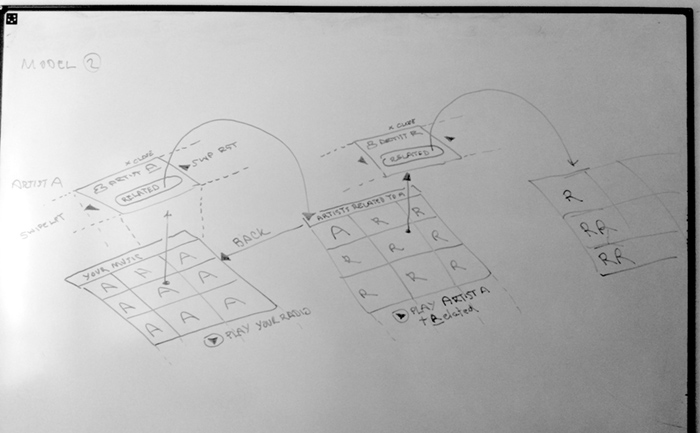 MODEL 2
x CLOSE
ARTIST A
RELATED
ARTIST A
SWIPE LFT
SWP RGT
YOUR MUSIC
A A A
A A A
A A A
PLAY YOUR RADIO
BACK
x CLOSE
ARTIST R
RELATED
ARTISTS RELATED TO A
A R R
R R R
R R R
PLAY ARTIST A
+ Related
R
RR
RR